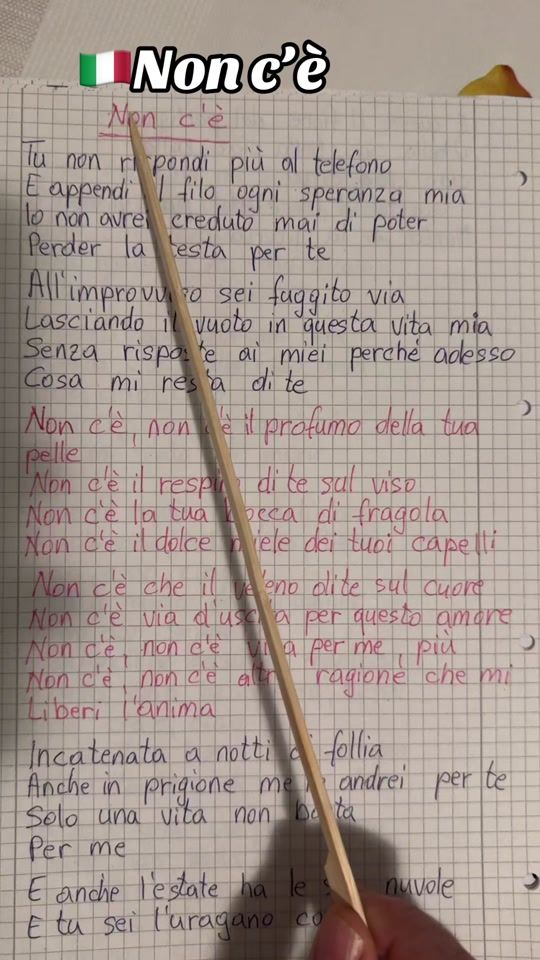 🇮🇹Non c'è
Non c'è
Tu non rispondi più al telefono
E appendi il filo ogni speranza mia
Io non avrei creduto mai di poter
Perder la testa per te
All'improvviso sei fuggito via
Lasciando il vuoto in questa vita mia
Senza risposte ai miei perché adesso
Cosa mi resta di te
Non c'è, non c'è il profumo della tua
pelle
Non c'è il respiro di te sul viso
Non c'è la tua bocca di fragola
Non c'è il dolce miele dei tuoi capelli
Non c'è che il veleno di te sul cuore
Non c'è via d'uscita per questo amore
Non c'è, non c'è vita per me, più
Non c'è, non c'è altra ragione che mi
Liberi l'anima
Incatenata a notti di follia
Anche in prigione me andrei per te
Solo una vita non basta
Per me
E anche l'estate ha le nuvole
E tu sei l'uragano